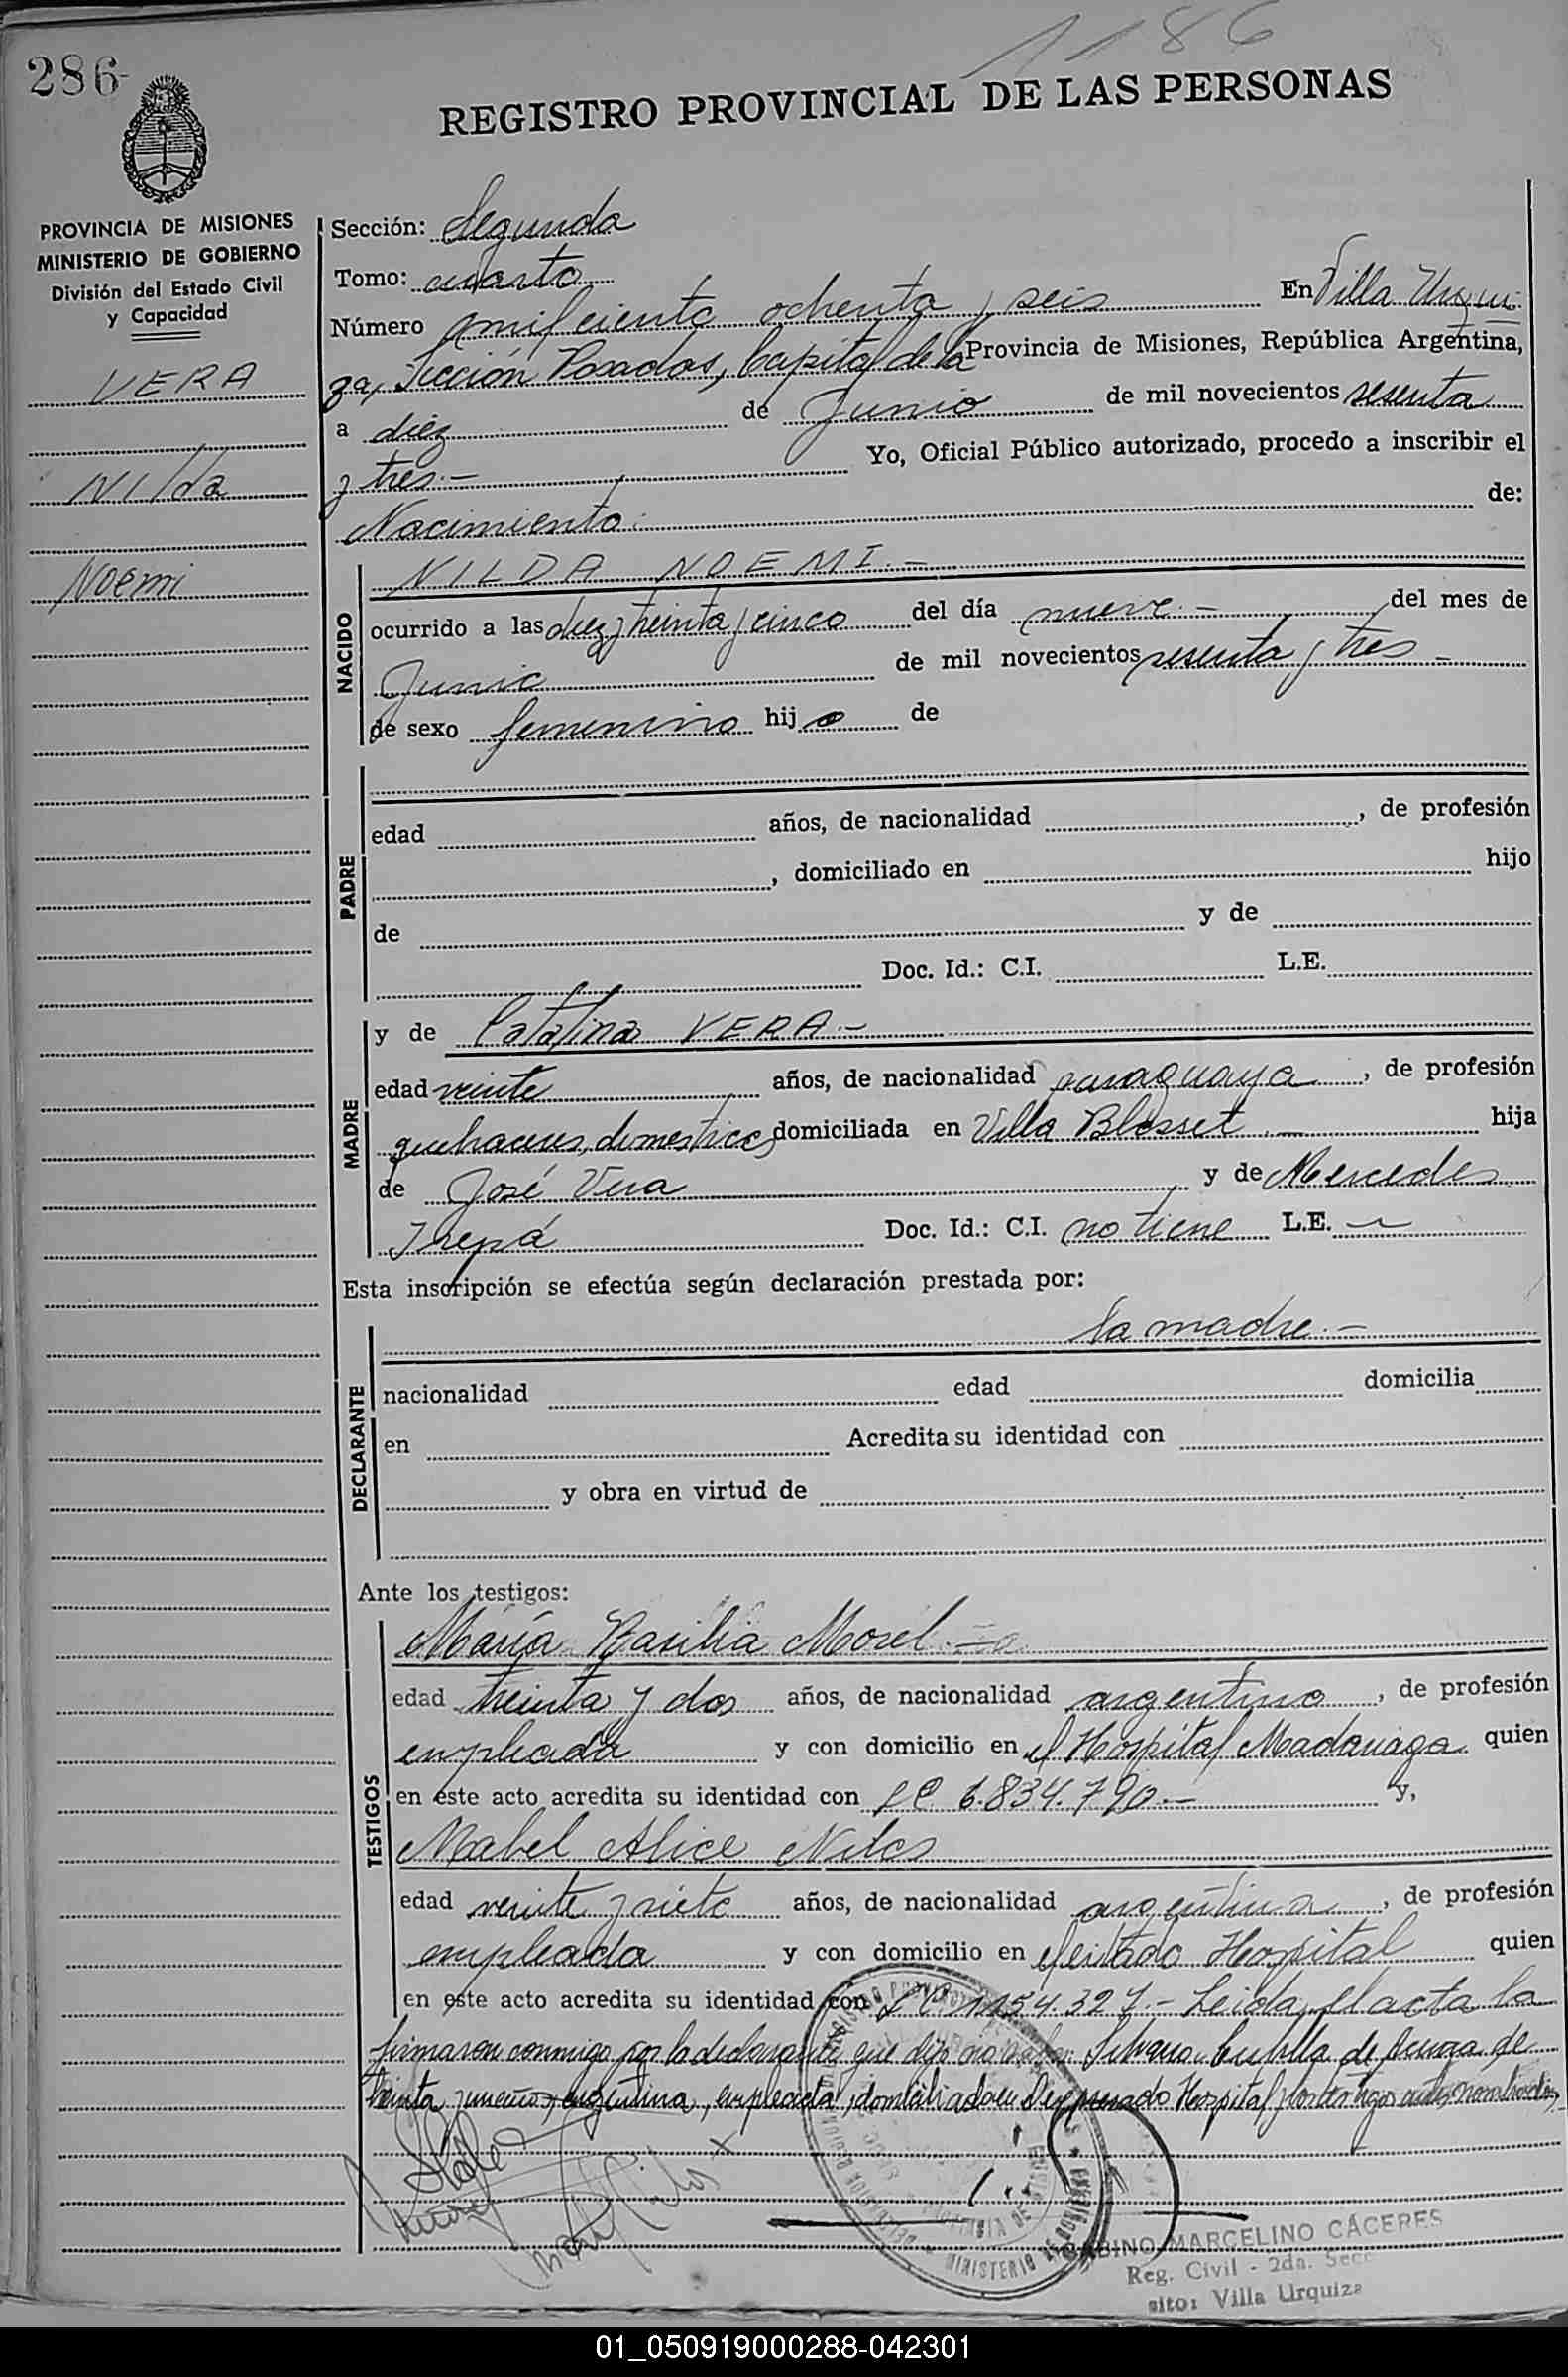 1186
286-
REGISTRO PROVINCIAL DE LAS PERSONAS
PROVINCIA DE MISIONES
MINISTERIO DE GOBIERNO
División del Estado Civil
y Capacidad
VERA
Nilda
Noemi
Sección: Segunda
Tomo: cuarto
Número mil ciento ochenta y seis En Villa Urqui-
za, Sección Posadas, Capital de la Provincia de Misiones, República Argentina,
a diez de Junio de mil novecientos sesenta
y tres.- Yo, Oficial Público autorizado, procedo a inscribir el
Nacimiento. de:
NACIDO
NILDA NOEMI.-
ocurrido a las diez y treinta y cinco del día nueve.- del mes de
Junio de mil novecientos sesenta y tres -
de sexo femenino hijo de
PADRE
edad años, de nacionalidad , de profesión
, domiciliado en hijo
de y de
Doc. Id.: C.I. L.E.
MADRE
y de Catalina VERA.-
edad veinte años, de nacionalidad paraguaya , de profesión
quehaceres domesticos domiciliada en Villa Blosset .- hija
de José Vera y de Mercedes
Doc. Id.: C.I. no tiene L.E.
Esta inscripción se efectúa según declaración prestada por:
DECLARANTE
la madre.-
nacionalidad edad domicilia
en Acredita su identidad con
y obra en virtud de
Ante los testigos:
TESTIGOS
María Basilia Morel
edad treinta y dos años, de nacionalidad argentina , de profesión
empleada y con domicilio en el Hospital Madariaga quien
en este acto acredita su identidad con LC 6.834.790.- y,
Mabel Alice
edad veinte y siete años, de nacionalidad argentina , de profesión
empleada y con domicilio en el citado Hospital quien
en este acto acredita su identidad con LC .327.- Leida el acta la
firmaron conmigo por la declarante que dijo no de de
treinta argentina, empleada, domiciliada en el expresado Hospital y los testigos antes nombrados.-
SABINO MARCELINO CÁCERES
Reg. Civil - 2da. Secc
sito: Villa Urquiza
01_050919000288-042301